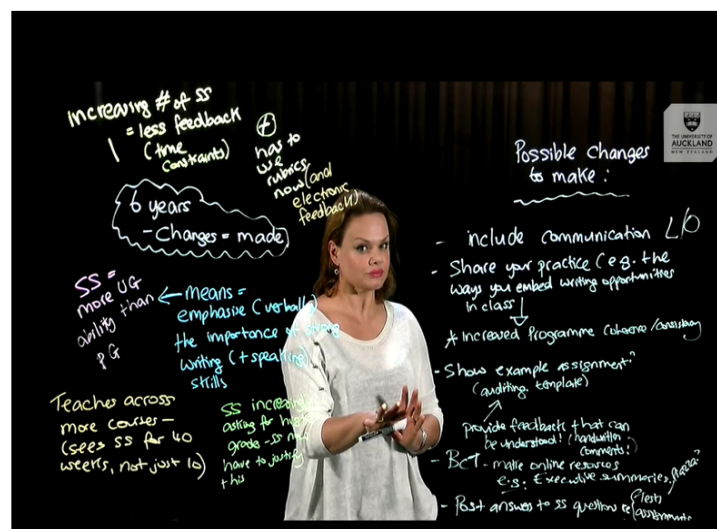 increasing # of SS
= less feedback
(time
constraints)
+
has to
use
rubrics
now (and
electronic
feedback)
6 years
- Changes = made
SS =
more UG
ability than
PG
← means =
emphasise (verbally)
the importance of strong
writing (+ speaking)
skills
Teaches across
more courses -
(sees SS for 40
weeks, not just 10)
SS increasingly
asking for high
grade - SS now
have to justify
this
THE UNIVERSITY OF
AUCKLAND
NEW ZEALAND
Possible changes
to make:
- include communication L/O
- Share your practice (e.g. the
ways you embed writing opportunities
in class
* Increased Programme Coherence/consistency
- Show example assignment
(auditing template)
provide feedback that can
be understood! (handwritten
comments!
- make online resources
e.g. Executive summaries
- Post answers to SS questions re
tests
assignments